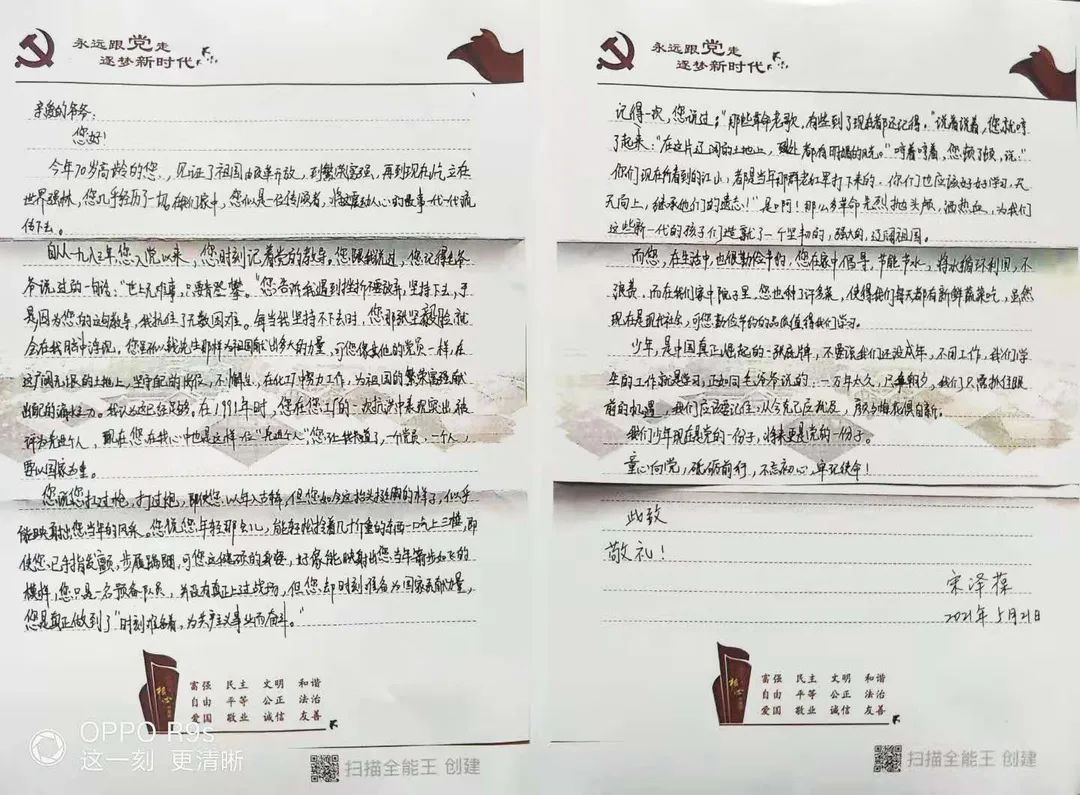 永远跟党走
逐梦新时代
亲爱的爷爷:
您好!
今年70岁高龄的您,见证了祖国由改革开放,到繁荣富强,再到现在屹立在
世界强林,您几乎经历了一切,在我们家中,您似是一位传颂者,将这震动人心的故事一代一代流
传下去。
自从一九八三年,您入党以来,您时刻记着党的教导。您跟我说过,您记得毛爷
爷说过的一句话:"世上无难事,只要肯登攀。"您告诉我遇到挫折不要放弃,坚持下去,于
是因为您的这句教导,我抗住了无数困难。每当我坚持不下去时,您那张坚毅脸就
会在我脑中浮现。您虽
先生那样为祖国献出多大的力量,可您像其他的党员一样,在
这广阔无垠的土地上,坚守自己的岗位,不懈
,在化工厂努力工作,为祖国的繁荣富强献
出自己的
力。我认为这已经足够。在1991年时,您在您工的一次
中表现突出被
评为先进个人,现在您在我心中也是这样一位"先进个人"您让我知道了,一个党员,一个人,
要以国家为重。
您说您扛过枪,打过炮,即使您以年入古稀,但您如今这抬头挺胸的样子,似乎
能映射出您当年的风采。您说您年轻那会儿,能轻松拎着几十斤重的东西一口气上三楼,即
使您已手指发颤,步履蹒跚,可您这健硕的身姿,好像能映射出您当年箭步如飞的
模样,您只是一名预备队员,并没有真正上过战场,但您却时刻准备为国家贡献力量,
您是真正做到了"时刻准备着,为共产主义事业而奋斗。"
富强 民主 文明 和谐
自由 平等 公正 法治
爱国 敬业 诚信 友善
OPPO R9s
这一刻 更清晰
扫描全能王 创建
永远跟党走
逐梦新时代
记得一次,您说过:"那些革命老歌,有些到了现在都还记得。"说着说着,您就哼
了起来:"在这片辽阔的土地上,到处都有明媚的风光。"哼着哼着,您顿了顿,说:"
你们现在所看到的江山,都是当年那群老红军打下来的,你们也应该好好学习,天
天向上,继承他们的遗志!"是啊!那么多革命先烈抛头颅,洒热血,为我们
这些新一代的孩子们造就了一个坚韧的,强大的,辽阔祖国。
而您,在生活中,也很勤俭节约,您在家中倡导,节能节水,将水循环利用,不
浪费,而在我们家中院子里,您也种了许多菜,使得我们每天都有新鲜蔬菜吃,虽然
现在是现代社会,可您勤俭节约的品德值得我们学习。
少年,是中国真正崛起的一张底牌,不要说我们还没成年,不用工作,我们学
生的工作就是学习,正如同毛爷爷说的:一万年太久,只争朝夕,我们只需抓住眼
前的机遇,我们应该要记住,从今克己应犹及,颜与梅花俱自新。
我们少年现在是党的一份子,将来更是党的一份子。
童心向党,砥砺前行,不忘初心,牢记使命!
此致
敬礼!
宋泽葆
2021年5月21日
富强 民主 文明 和谐
自由 平等 公正 法治
爱国 敬业 诚信 友善
扫描全能王 创建